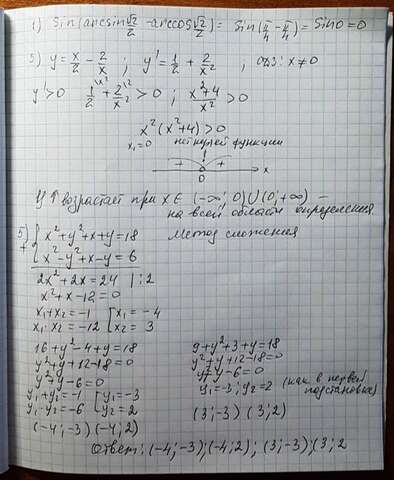 1) Sin(arcsin √2/2 - arccos √2/2) = Sin(π/4 - π/4) = Sin0 = 0
5) y = x/2 - 2/x ; y' = 1/2 + 2/x² ; ОДЗ: x ≠ 0
y' > 0 1/2 + 2/x² > 0 ; x²+4/x² > 0
x²(x²+4) > 0
x₁=0 нет нулей функции
+ + x
0
У ↑ возрастает при x ∈ (-∞; 0)∪(0; +∞) -
на всей области определения
5) x²+y²+x+y=18 Метод сложения
+ x²-y²+x-y=6
2x²+2x=24 | :2
x²+x-12=0
x₁+x₂=-1 [x₁=-4
x₁·x₂=-12 [x₂=3
16+y²-4+y=18
y²+y+12-18=0
y²+y-6=0
y₁+y₂=-1 [y₁=-3
y₁·y₂=-6 [y₂=2
(-4;-3) (-4;2)
9+y²+3+y=18
y²+y+12-18=0
y²+y-6=0
y₁=-3; y₂=2 (как в первой
подстановке)
(3;-3) (3;2)
Ответ: (-4;-3); (-4;2); (3;-3); (3;2